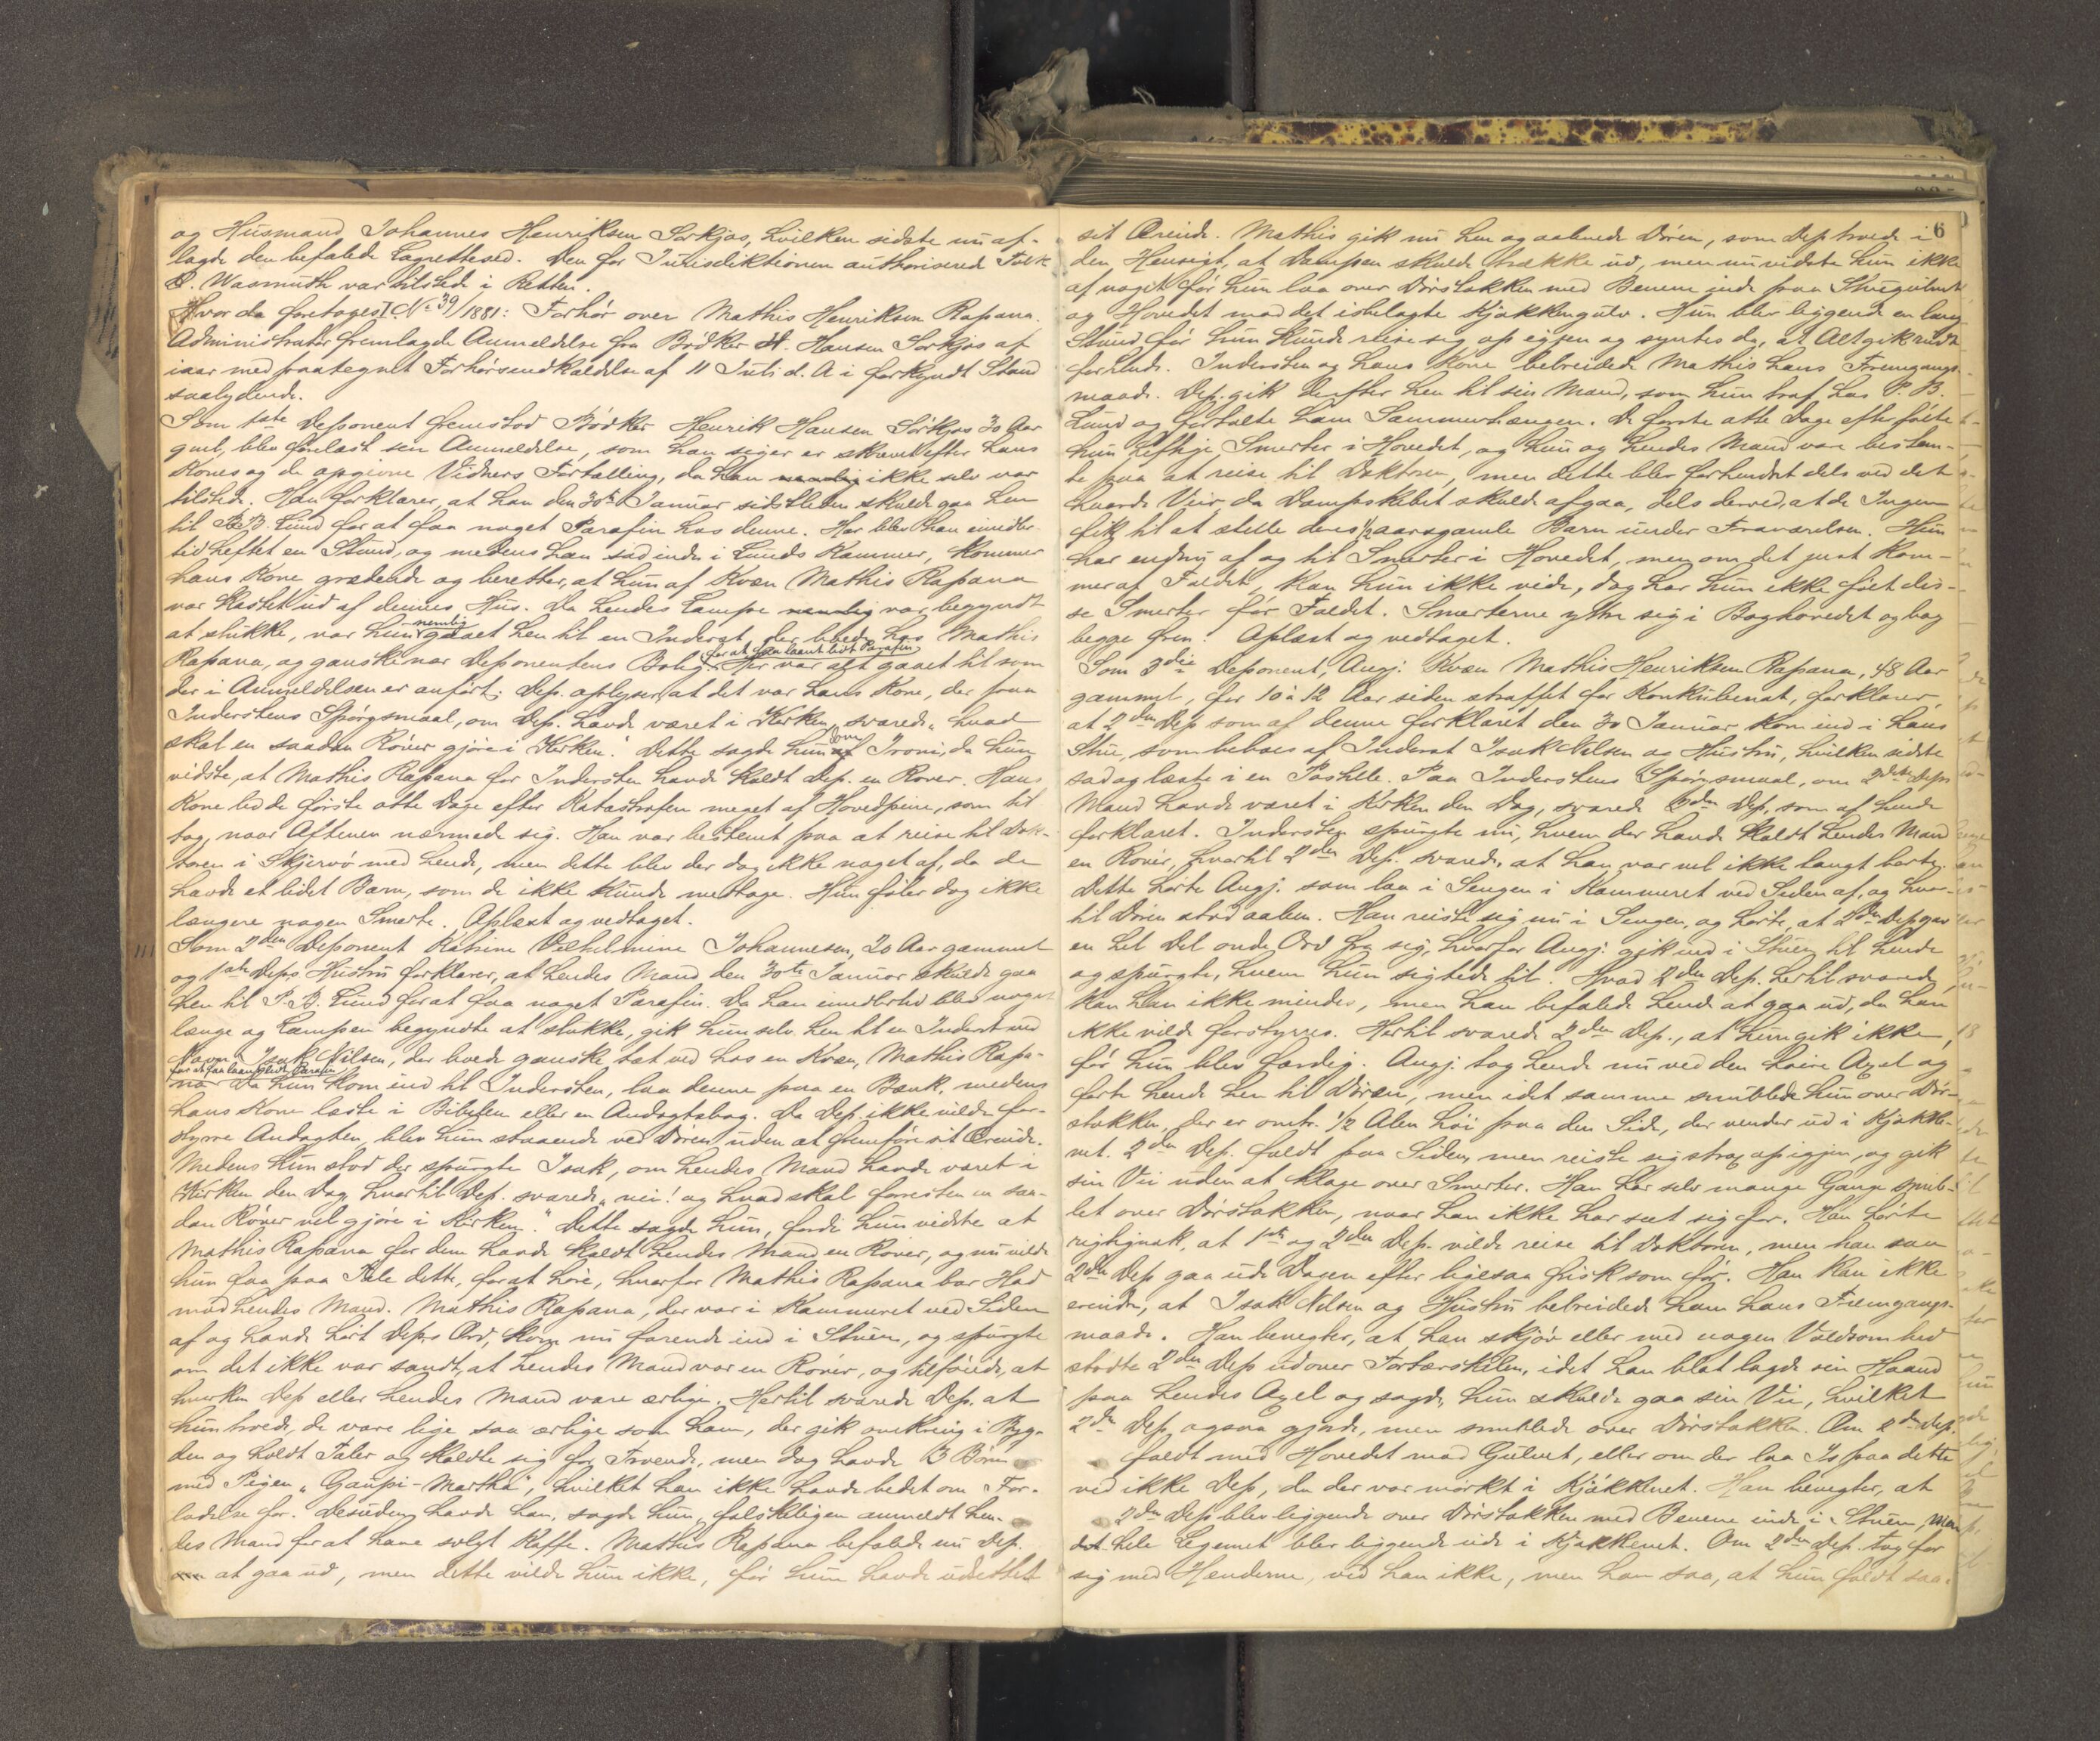 og Husmand Johannes Henriksen Sørkjos, hvilken sidste nu af-
lagde den befalede Lagrettesed. Den for Jurisdiktionen authoriserede Tolk
P. Wasmuth var tilstede i Retten.
Hvor da foretoges I. No 39/1881: Forhør over Mathis Henriksen Rapana.
Administrator fremlagde Anmeldelse fra Bödker H. Hansen Sorkjos af
iaar med paategnet Forhørsindkaldelse af 11 Juli d. A i forkyndt Stand
saalydende.
Som 1ste Deponent fremstod Bödker Henrik Hansen Sörkjos 30 Aar
gml, blev forelæst sin Anmeldelse, som han siger er skrevet efter hans
Kones og de opgivne Vidners Fortælling, da han ikke selv var
tilstede. Han forklarer, at han den 30te Januar sidstleden skulde gaa hen
til P.B. Lund for at faa noget Parafin hos denne. Her blev han imidler-
tid heftet en Stund, og medens han sad inde i Lunds Kammer, kommer
hans Kone grædende og beretter, at hun af Kvæn Mathis Rapana
var kastet ud af dennes Hus. Da hendes Lampe var begyndt
at slukke, var hun nemlig gaaet hen til en Inderst, der boede hos Mathis
Rapana, og ganske nær Deponentens Bolig for at faa laant lidt Parafin. Her var alt gaaet til som
der i Anmeldelsen er anført. Dep. oplyser, at det var hans Kone, der paa
Inderstens Spörgsmaal, om Dep. havde været i Kirken, svarede „hvad
skal en saadan Röver gjöre i Kirken." Dette sagde hun som Ironi, da hun
vidste, at Mathis Rapana for Indersten havde kaldt Dep. en Röver. Hans
Kone led de første otte Dage efter Katastrofen meget af Hovedpine, som til-
tog, naar Aftenen nærmede sig. Han var bestemt paa at reise til Dok-
toren i Skjervö med hende, men dette blev der dog ikke noget af, da de
havde et lidet Barn, som de ikke kunde medtage. Hun föler dog ikke
længere nogen Smerte. Oplæst og vedtaget.
Som 2den Deponent Katrine Vilhelmine Johannesen, 20 Aar gammel
og 1ste Deps Hustru forklarer, at hendes Mand den 30te Januar skulde gaa
hen til P.B. Lund for at faa noget Parafin. Da han imidlertid blev noget
længe og Lampen begyndte at slukke, gik hun selv hen til en Inderst ved
Navn Isak Nilsen, der boede ganske tæt ved hos en Kvæn, Mathis Rapa-
na for at faa laant lidt Parafin. Da hun kom ind til Indersten, laa denne paa en Bænk, medens
hans Kone læste i Bibelen eller en Andagtsbog. Da Dep. ikke vilde for-
styrre Andagten, blev hun staaende ved Dören uden at fremföre sit Ærinde.
Medens hun stod der spurgte Isak, om hendes Mand havde været i
Kirken den Dag, hvortil Dep. svarede „nei! og hvad skal forresten en saa-
dan Röver vel gjöre i Kirken." Dette sagde hun, fordi hun vidste at
Mathis Rapana for dem havde kaldt hendes Mand en Röver, og nu vilde
hun faa paa Tale dette, for at höre, hvorfor Mathis Rapana bar Had
mod hendes Mand. Mathis Rapana, der var i Kammeret ved Siden
af og havde hört Deps Ord, kom nu farende ind i Stuen, og spurgte
om det ikke var sandt, at hendes Mand var en Röver, og tilföiede, at
hverken Dep. eller hendes Mand vare ærlige. Hertil svarede Dep. at
hun troede, de vare lige saa ærlige som ham, der gik omkring i Byg-
den og holdt Taler og kaldte sig for Troende, men dog havde 3 Börn
med Pigen „Gaupi-Martha", hvilket han ikke havde bedet om For-
ladelse for. Desuden havde han, sagde hun, falskeligen anmeldt hen-
des Mand for at have solgt Kaffe. Mathis Rapana befalede nu Dep.
at gaa ud, men dette vilde hun ikke, för hun havde udrettet
6
sit Ærinde. Mathis gik nu hen og aabnede Dören, som Dep troede i
den Hensigt, at Dampen skulde trække ud, men nu vidste hun ikke
af noget för hun laa over Dörstokken med Benene inde paa Stuegulvet
og Hovedet mod det isbelagte Kjøkkengulv. Hun blev liggende en lang
Stund för hun kunde reise sig op igjen og syntes da, at Alt gik rundt
for hende. Indersten og hans Kone bebreidede Mathis hans Fremgangs-
maade. Dep. gik derefter hen til sin Mand, som hun traf hos P. B.
Lund og fortalte ham Sammenhængen. De første otte Dage efter fölte
hun heftige Smerter i Hovedet, og hun og hendes Mand vare bestem-
te paa at reise til Doktoren, men dette blev forhindret dels ved det
haarde Veir, da Dampskibet skulde afgaa, dels derved, at de Ingen
fik til at stelle deres 1/2 aarsgamle Barn under Fraværelsen. Hun
har endnu af og til Smerter i Hovedet, men om det just kom-
mer af Faldet, kan hun ikke vide, dog har hun ikke fölt dis-
se Smerter för Faldet. Smerterne yttre sig i Baghovedet og bag
begge Øren. Oplæst og vedtaget.
Som 3die Deponent, Angj. Kvæn Mathis Henriksen Rapana, 48 Aar
gammel, for 10 à 12 Aar siden straffet for Konkubinat, forklarer,
at 2den Dep som af denne forklaret den 30 Januar kom ind i hans
Stue, som beboes af Inderst Isak Nilsen og Hustru, hvilken sidste
sad og læste i en Postille. Paa Inderstens Spörgsmaal, om 2den Deps
Mand havde været i Kirken den Dag, svarede 2den Dep. som af hende
forklaret. Indersten spurgte nu, hvem der havde kaldt hendes Mand
en Röver, hvortil 2den Dep. svarede, at han var vel ikke langt borte.
Dette hörte Angj. som laa i Sengen i Kammeret ved Siden af, og hvor-
til Dören stod aaben. Han reiste sig nu i Sengen, og hörte, at 2den Dep gav
en hel Del onde Ord fra sig, hvorfor Angj. gik ind i Stuen til hende
og spurgte, hvem hun sigtede til. Hvad 2den Dep. hertil svarede,
kan han ikke mindes, men han befalede hende at gaa ud, da han
ikke vilde forstyrres. Hertil svarede 2den Dep., at hun gik ikke,
för hun blev færdig. Angj. tog hende nu ved den höire Axel og
förte hende hen til Dören, men idet samme snublede hun over Dör-
stokken, der er omtr. 1/2 Alen höi paa den Side, der vender ud i Kjøkke-
net. 2den Dep. faldt paa Siden, men reiste sig strax op igjen, og gik
sin Vei uden at klage over Smerter. Han har selv mange Gange snub-
let over Dörstokken, naar han ikke har seet sig for. Han hörte
rigtignok, at 1ste og 2den Dep. vilde reise til Doktoren, men han saa
2den Dep gaa ude Dagen efter ligesaa frisk som för. Han kan ikke
erindre, at Isak Nilsen og Hustru bebreidede ham hans Fremgangs-
maade. Han benegter, at han skjöv eller med nogen Voldsomhed
stödte 2den Dep udover Dörtærskelen, idet han blot lagde sin Haand
paa hendes Axel og sagde, hun skulde gaa sin Vei, hvilket
2den Dep. ogsaa gjorde, men snublede over Dörstokken. Om 2den Dep.
faldt med Hovedet mod Gulvet, eller om der laa Is paa dette
ved ikke Dep, da der var mörkt i Kjøkkenet. Han benegter, at
2den Dep blev liggende over Dörstokken med Benene inde i Stuen, men
det hele Legemet blev liggende ude i Kjøkkenet. Om 2den Dep. tog for
sig med Henderne, ved han ikke, men han saa, at hun faldt saa-